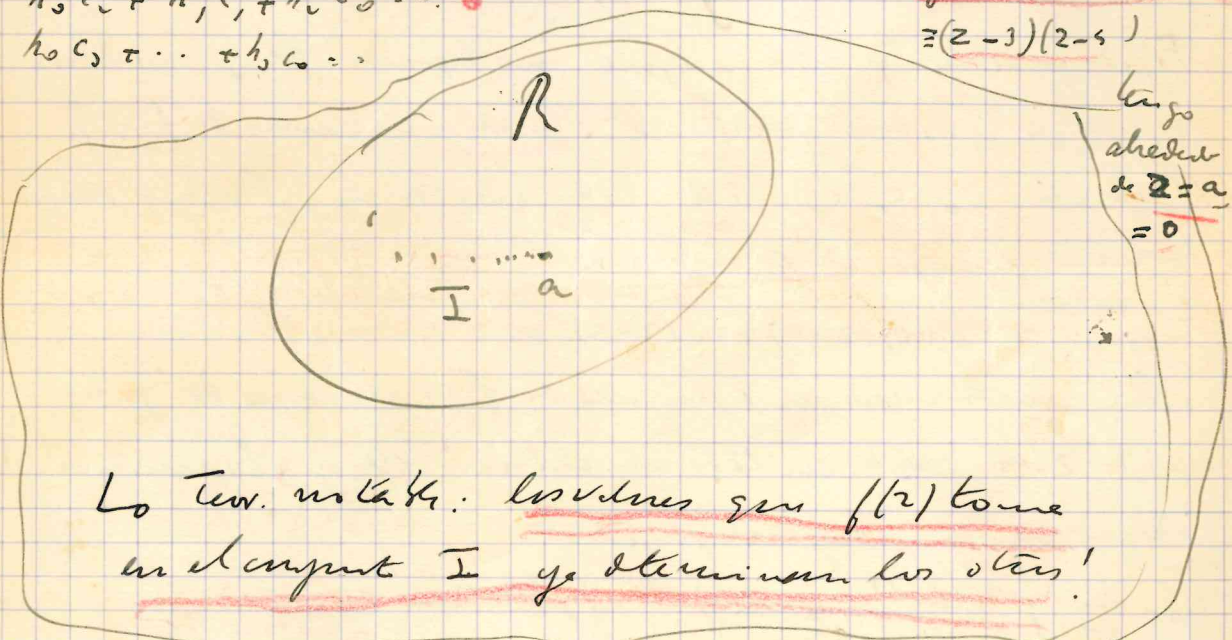 h₀c₂ + h₁c₁ + h₂c₀
h₀ c₃ + ·· + h₃ c₀ =
≡(z-3)(z-4)
tengo
alreded
de z = a
= 0
R
I a
Lo Teor. notable: los valores que f(z) tome
en el conjunto I ya determinan los otros!